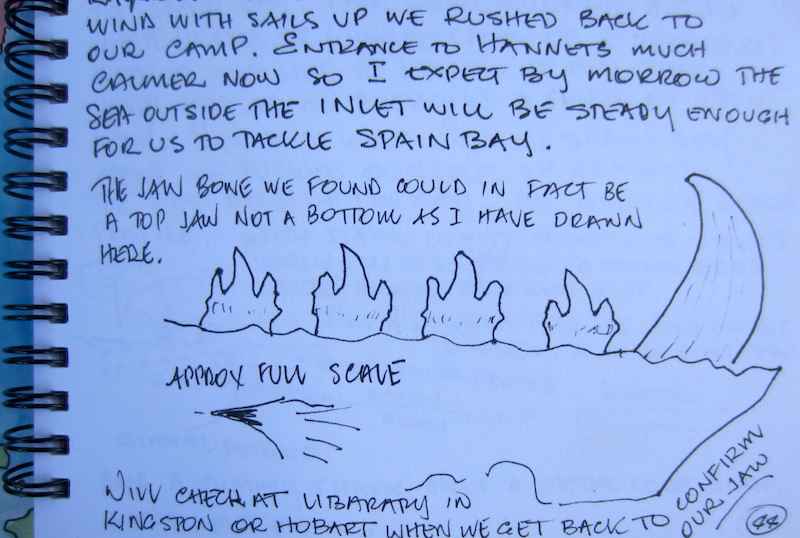 WIND WITH SAILS UP WE RUSHED BACK TO
OUR CAMP. ENTRANCE TO HANNETS MUCH
CALMER NOW SO I EXPECT BY MORROW THE
SEA OUTSIDE THE INLET WILL BE STEADY ENOUGH
FOR US TO TACKLE SPAIN BAY.
THE JAW BONE WE FOUND COULD IN FACT BE
A TOP JAW NOT A BOTTOM AS I HAVE DRAWN
HERE.
APPROX FULL SCALE
WILL CHECK AT LIBARARY IN
KINGSTON OR HOBART WHEN WE GET BACK TO
CONFIRM
OUR JAW
44